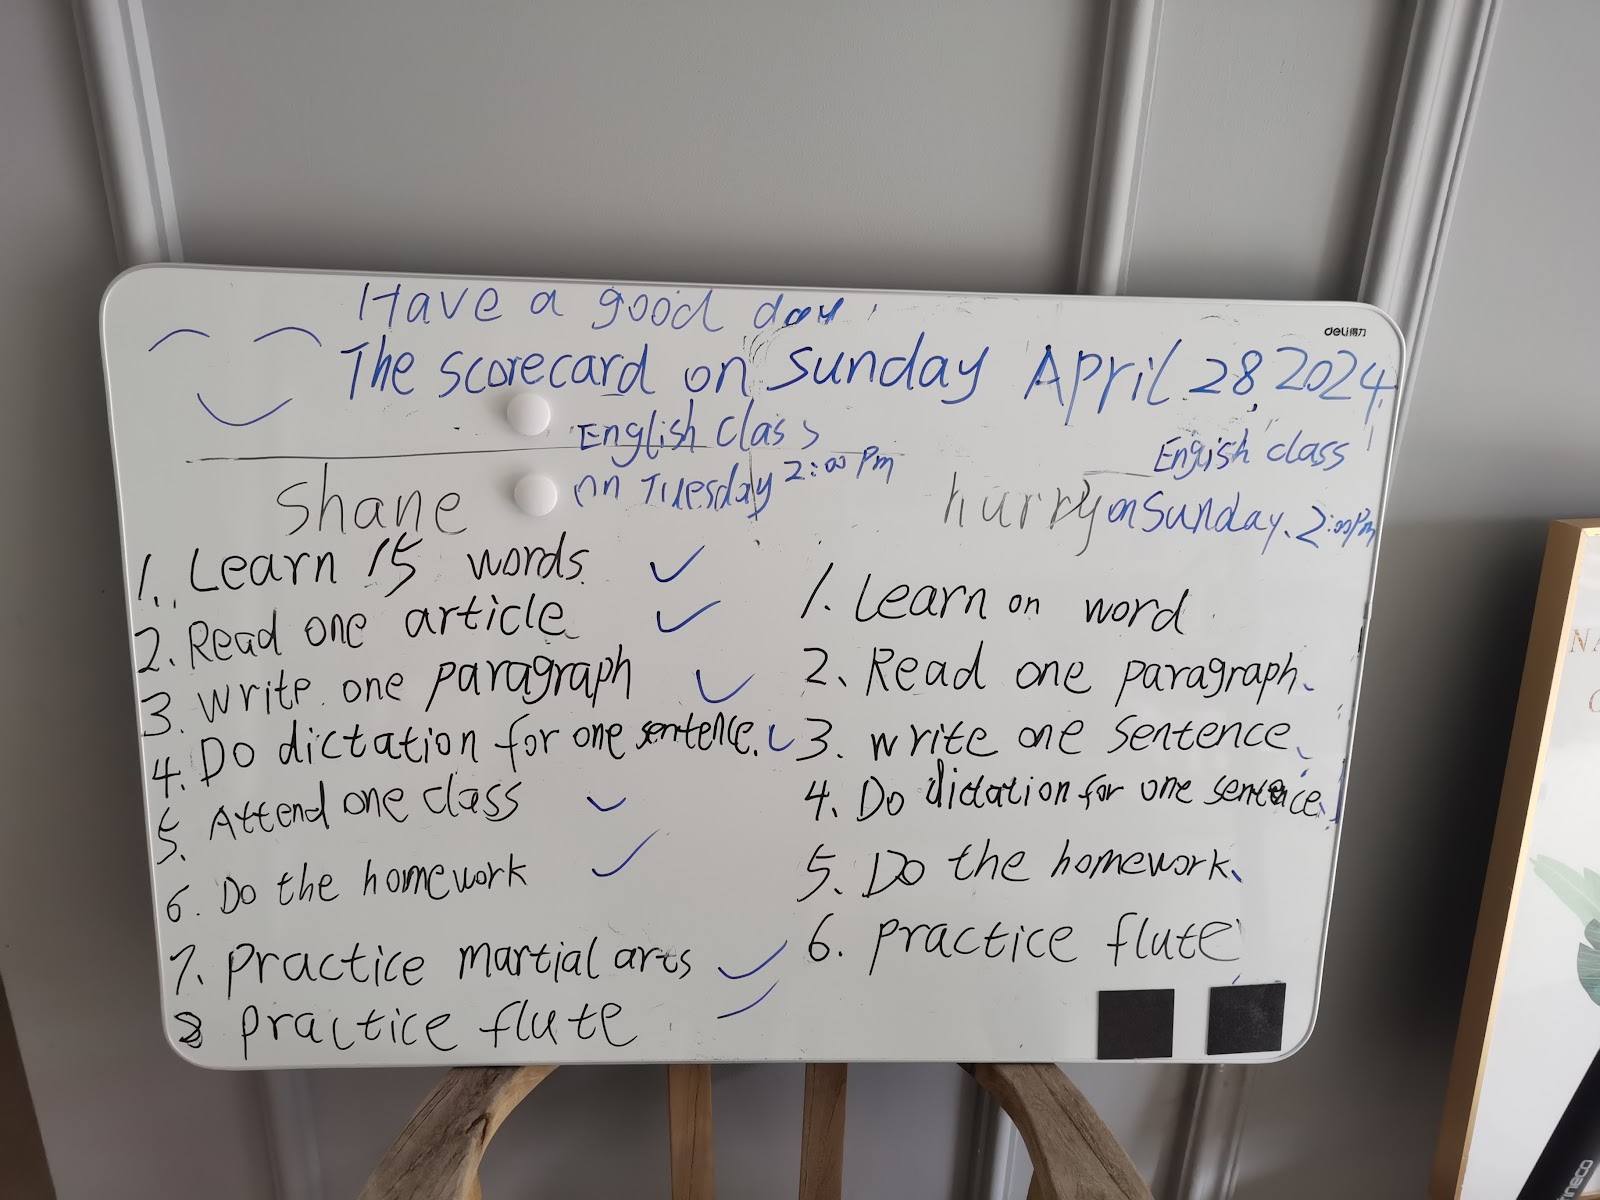 Have a good day
deli得力
The scorecard on Sunday April 28, 2024.
English class
on Tuesday 2:00 Pm
Engish class
on Sunday, 2:00Pm
Shane
1. Learn 15 words.
2. Read one article
3. write one paragraph
4. Do dictation for one sentence.
5. Attend one class
6. Do the homework
7. practice martial arts
8 practice flute
hurry
1. Learn on word
2. Read one paragraph.
3. write one sentence.
4. Do dictation for one sentence.
5. Do the homework.
6. practice flute
NA
ineco